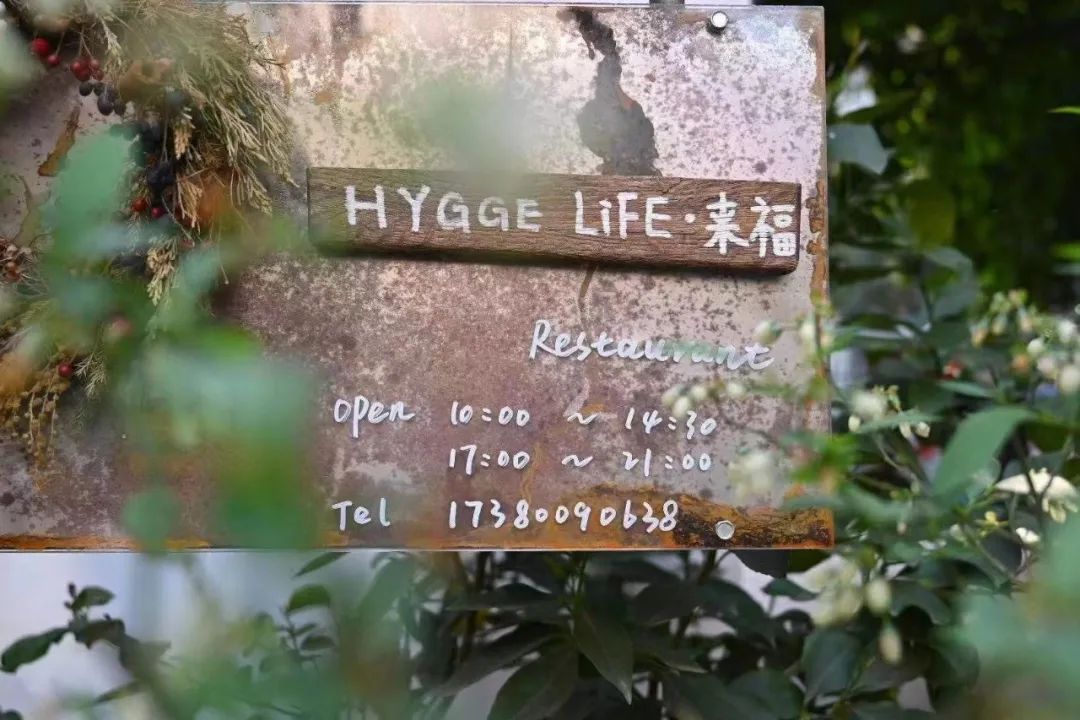 HYGGE LiFE·来福
Restaurant
open 10:00 ~ 14:30
17:00 ~ 21:00
Tel 17380090638